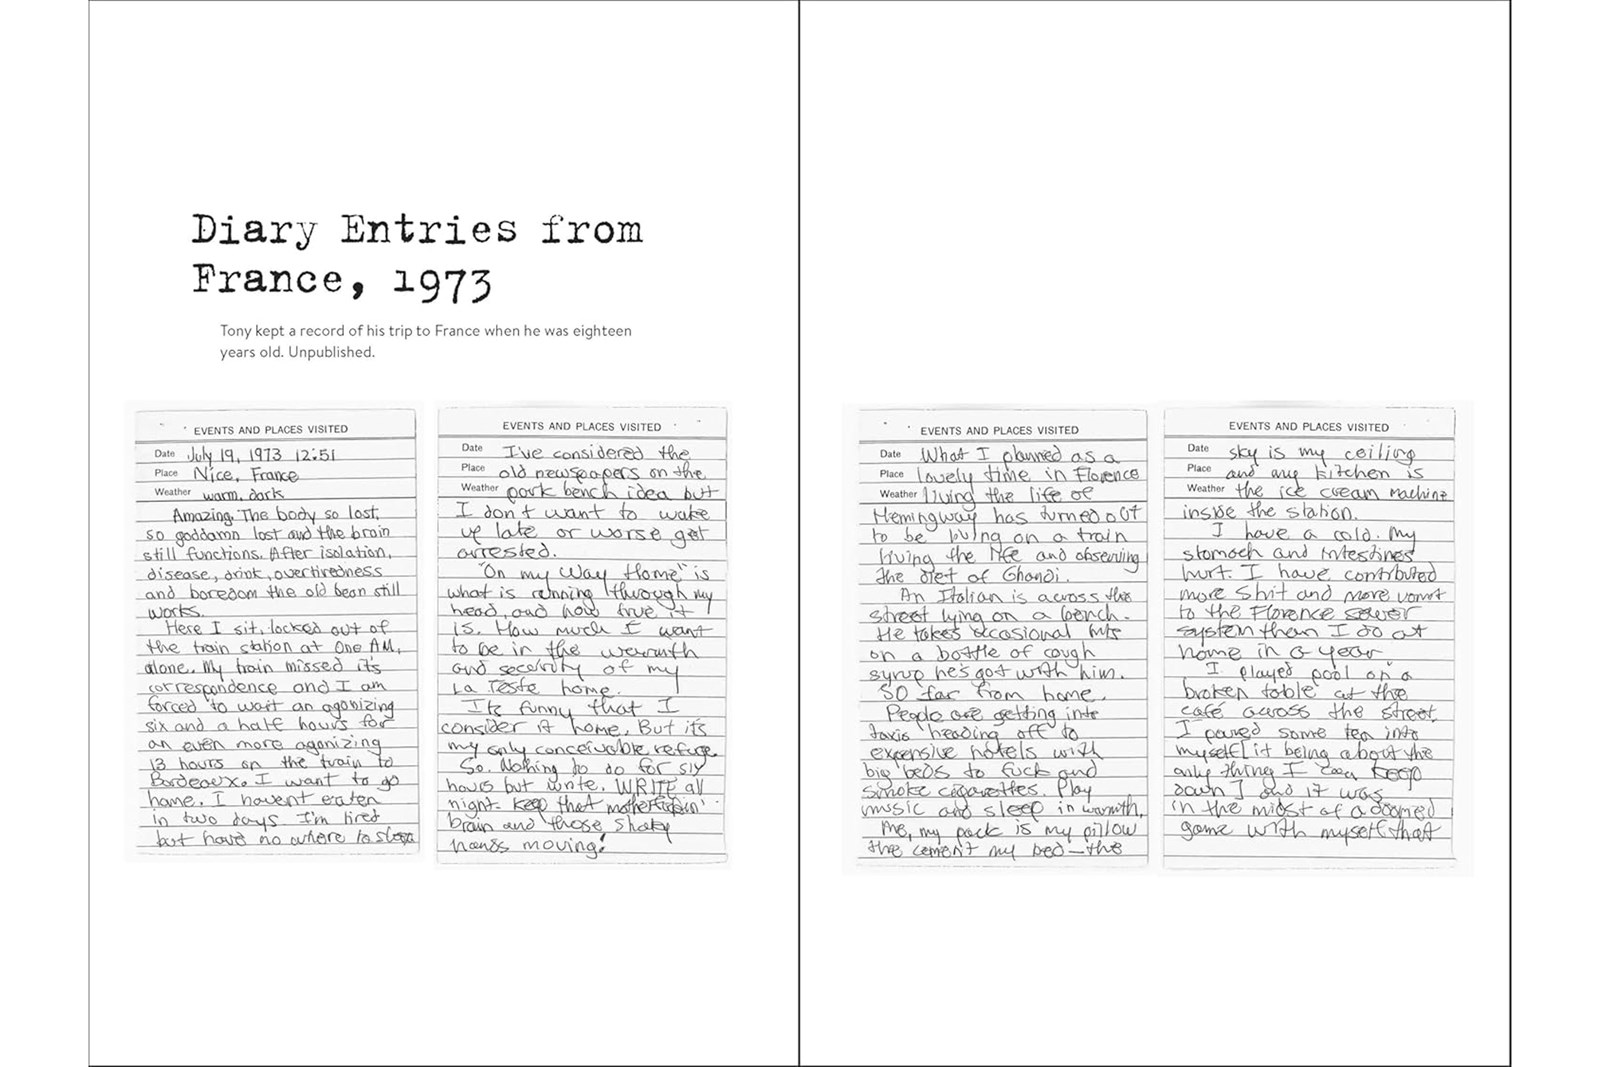 Diary Entries from
France, 1973
Tony kept a record of his trip to France when he was eighteen
years old. Unpublished.
EVENTS AND PLACES VISITED
Date July 19, 1973 12:51
Place Nice, France
Weather warm, dark
Amazing. The body so lost,
so goddamn lost and the brain
still functions. After isolation,
disease, drink, overtiredness
and boredom the old bean still
works.
Here I sit, locked out of
the train station at One AM,
alone. My train missed it's
correspondence and I am
forced to wait an agonizing
six and a half hours for
an even more agonizing
13 hours on the train to
Bordeaux. I want to go
home. I havent eaten
in two days. I'm tired
but have no where to sleep
EVENTS AND PLACES VISITED
Date I've considered the
Place old newspapers on the
Weather park bench idea but
I don't want to wake
up late or worse get
arrested.
"On my Way Home" is
what is running through my
head, and how true it
is. How much I want
to be in the warmth
and security of my
La Teste home.
Its funny that I
consider it home. But its
my only conceivable refuge
So. Nothing to do for six
hours but write. WRITE all
night. Keep that motherfuckin'
brain and those shaky
hands moving!
EVENTS AND PLACES VISITED
Date What I planned as a
Place lovely time in Florence
Weather living the life of
Hemingway has turned out
to be living on a train
living the life and observing
the diet of Ghandi.
An Italian is across the
street lying on a bench.
He takes occasional hits
on a bottle of cough
syrup he's got with him.
So far from home.
People are getting into
taxis heading off to
expensive hotels with
big beds to fuck and
smoke cigarettes. Play
music and sleep in warmth.
Me, my pack is my pillow
the cement my bed—the
EVENTS AND PLACES VISITED
Date sky is my ceiling
Place and my kitchen is
Weather the ice cream machine
inside the station.
I have a cold. My
stomach and intestines
hurt. I have contributed
more shit and more vomit
to the Florence sewer
system than I do at
home in a year
I played pool on a
broken table at the
café across the street.
I poured some tea into
myself [it being about the
only thing I can keep
down] and it was
in the midst of a doomed
game with myself that